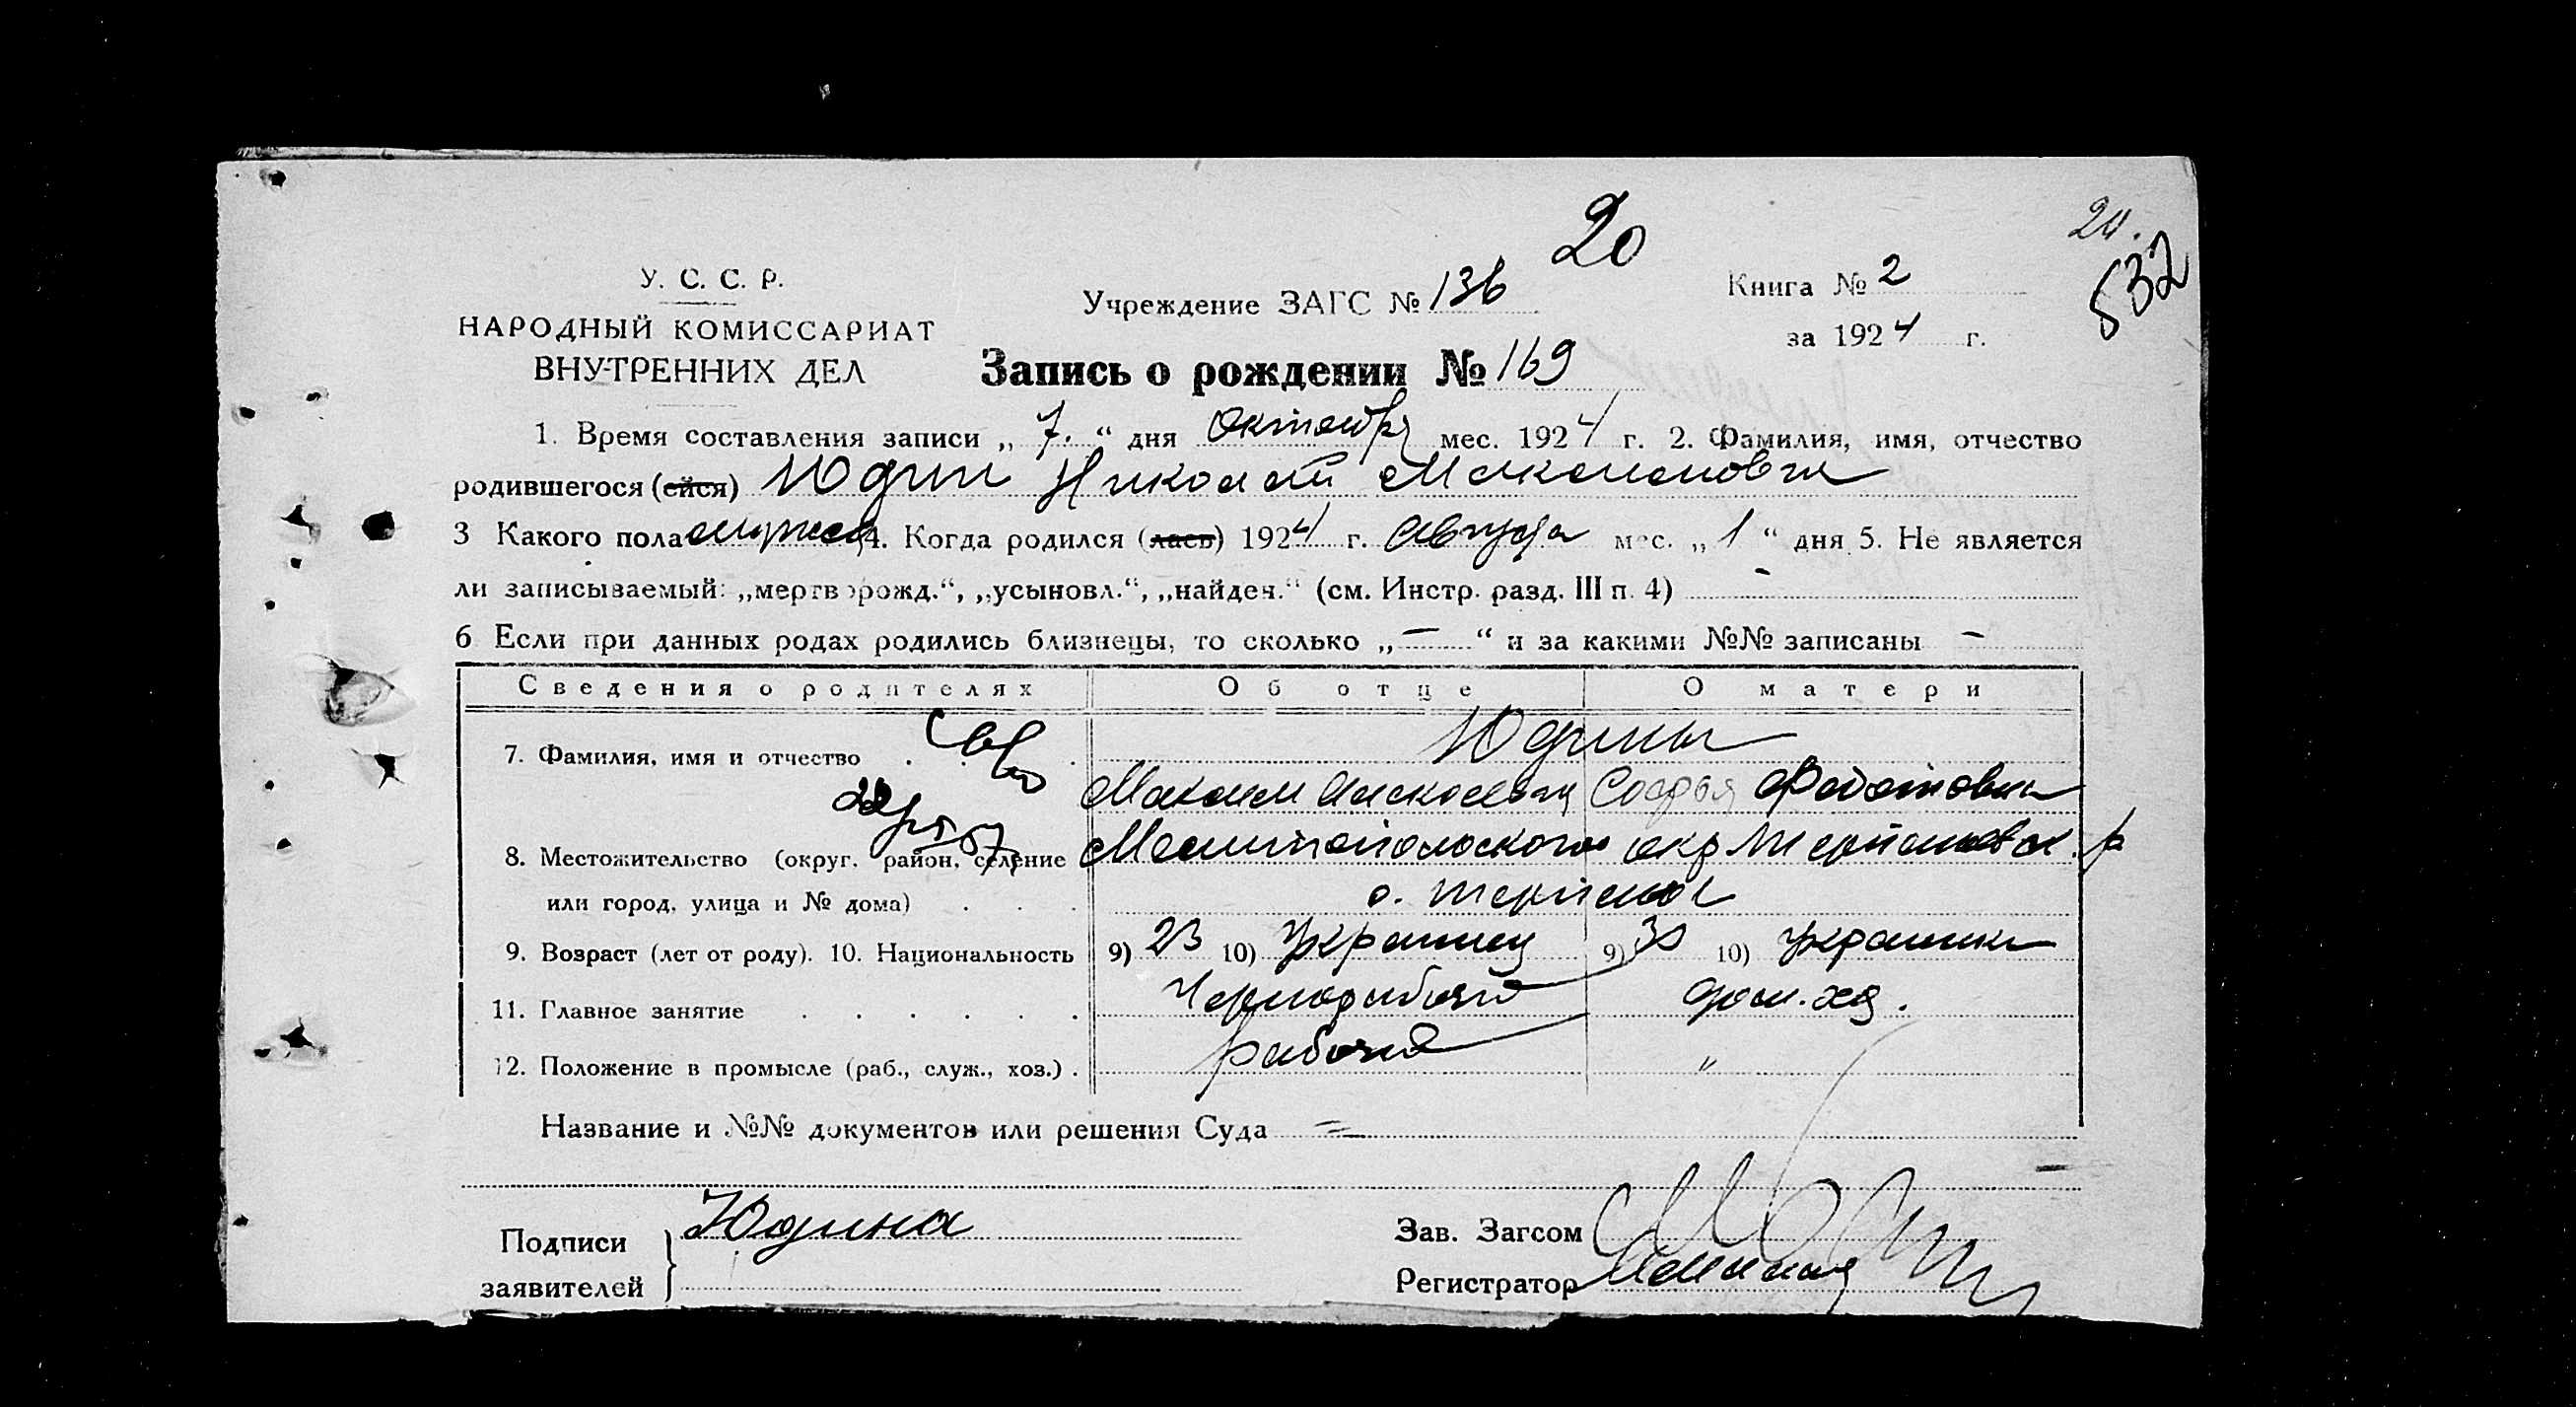 20
24.
532
У. С. С. Р.
НАРОДНЫЙ КОМИССАРИАТ
ВНУТРЕННИХ ДЕЛ
Учреждение ЗАГС № 136
Книга № 2
за 1924 г.
Запись о рождении № 169
1. Время составления записи „ 7. “ дня октября мес. 1924 г. 2. Фамилия, имя, отчество
родившегося (ейся) Юдин Николай Максимович
3 Какого пола мужск 4. Когда родился (лась) 1924 г. Августа мес. „ 1 “ дня 5. Не является
ли записываемый: „мертворожд.“, „усыновл.“, „найден.“ (см. Инстр. разд. III п. 4) -
6 Если при данных родах родились близнецы, то сколько „ — “ и за какими №№ записаны -
Сведения о родителях Об отце О матери
7. Фамилия, имя и отчество . . . Юдины
Максим Софья
8. Местожительство (округ, район, селение Мелитопольского окр
или город, улица и № дома) . . .
9. Возраст (лет от роду). 10. Национальность 9) 23 10) Украинец 9) 30 10) украинка
11. Главное занятие . . . . . . Чернорабочий дом. хоз.
12. Положение в промысле (раб., служ., хоз.) . рабочий "
Название и №№ документов или решения Суда =
Подписи
заявителей
Юдина
Зав. Загсом
Регистратор